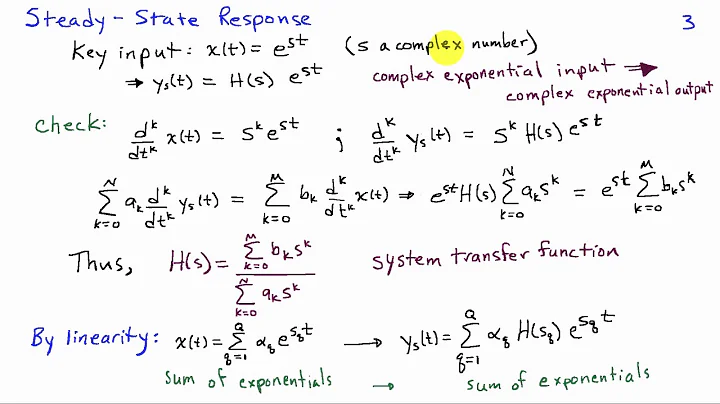 Steady-State Response 3
Key input: x(t) = e^{st} (s a complex number)
⇒ y_s(t) = H(s) e^{st} complex exponential input ⇒
complex exponential output
check: d^k/dt^k x(t) = s^k e^{st} ; d^k/dt^k y_s(t) = s^k H(s) e^{st}
∑_{k=0}^{N} a_k d^k/dt^k y_s(t) = ∑_{k=0}^{M} b_k d^k/dt^k x(t) ⇒ e^{st} H(s) ∑_{k=0}^{N} a_k s^k = e^{st} ∑_{k=0}^{M} b_k s^k
Thus, H(s) = ∑_{k=0}^{M} b_k s^k / ∑_{k=0}^{N} a_k s^k system transfer function
By linearity: x(t) = ∑_{q=1}^{Q} α_q e^{s_q t} → y_s(t) = ∑_{q=1}^{Q} α_q H(s_q) e^{s_q t}
sum of exponentials → sum of exponentials